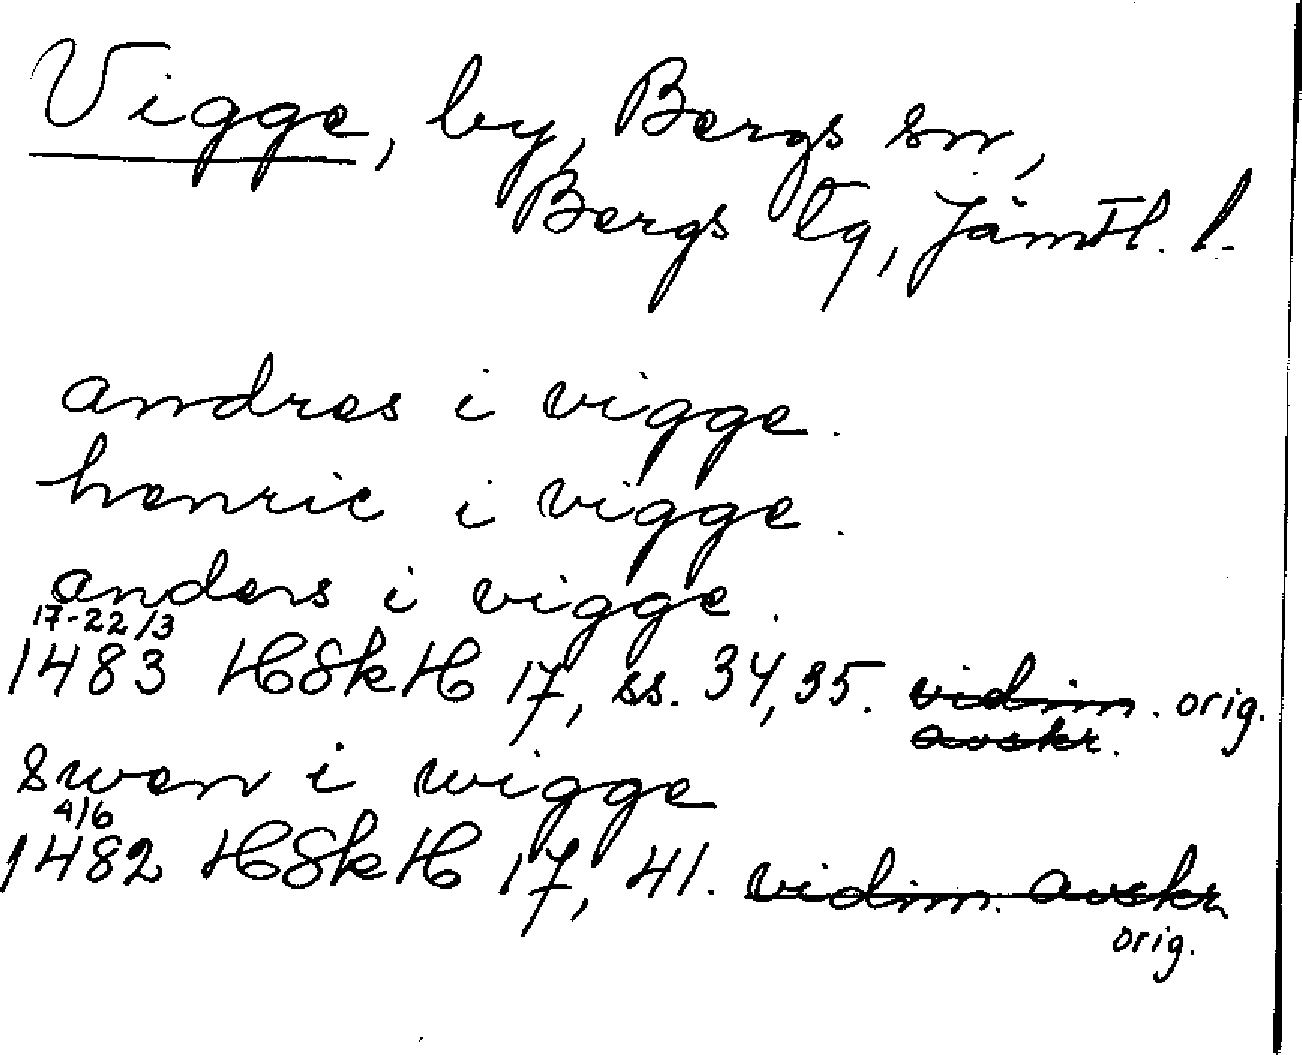 Vigge, by, Bergs sn,
Bergs tg, Jämtl. l.
andres i vigge.
henric i vigge.
anders i vigge.
17-22/3
1483 HSkH 17, ss. 34, 35. vidim. orig.
avskr.
swen i wigge
4/6
1482 HSkH 17, 41. vidim. avskr.
orig.